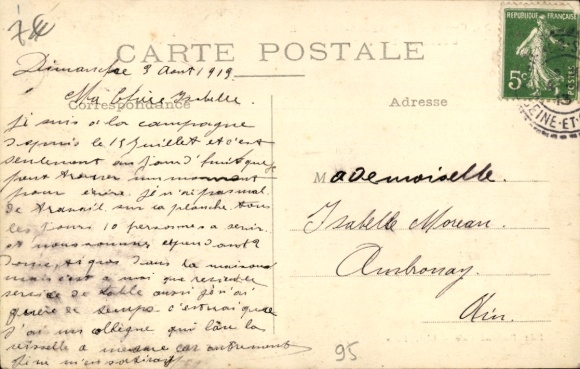 7 €
CARTE POSTALE
REPUBLIQUE FRANÇAISE
5c
POSTES
SEINE-ET-
13
Dimanche 3 Aout 1913
Ma Chère Isabelle.
Correspondance
Adresse
je suis a la campagne
depuis le 15 juillet et c'est
seulement aujourd'hui que je
peut trouver un moment
pour écrire je n'ai pas mal
de travail sur la planche tous
les jours 10 personnes a servir
et nous sommes
dans la maison
mais c'est a moi que revient le
service de table aussi je n'ai
guère de temps. c'est vrai que
j'ai un collègue qui lave la
visselle a car autrement
Mademoiselle.
Isabelle Moreau.
Ambronay.
Ain.
95